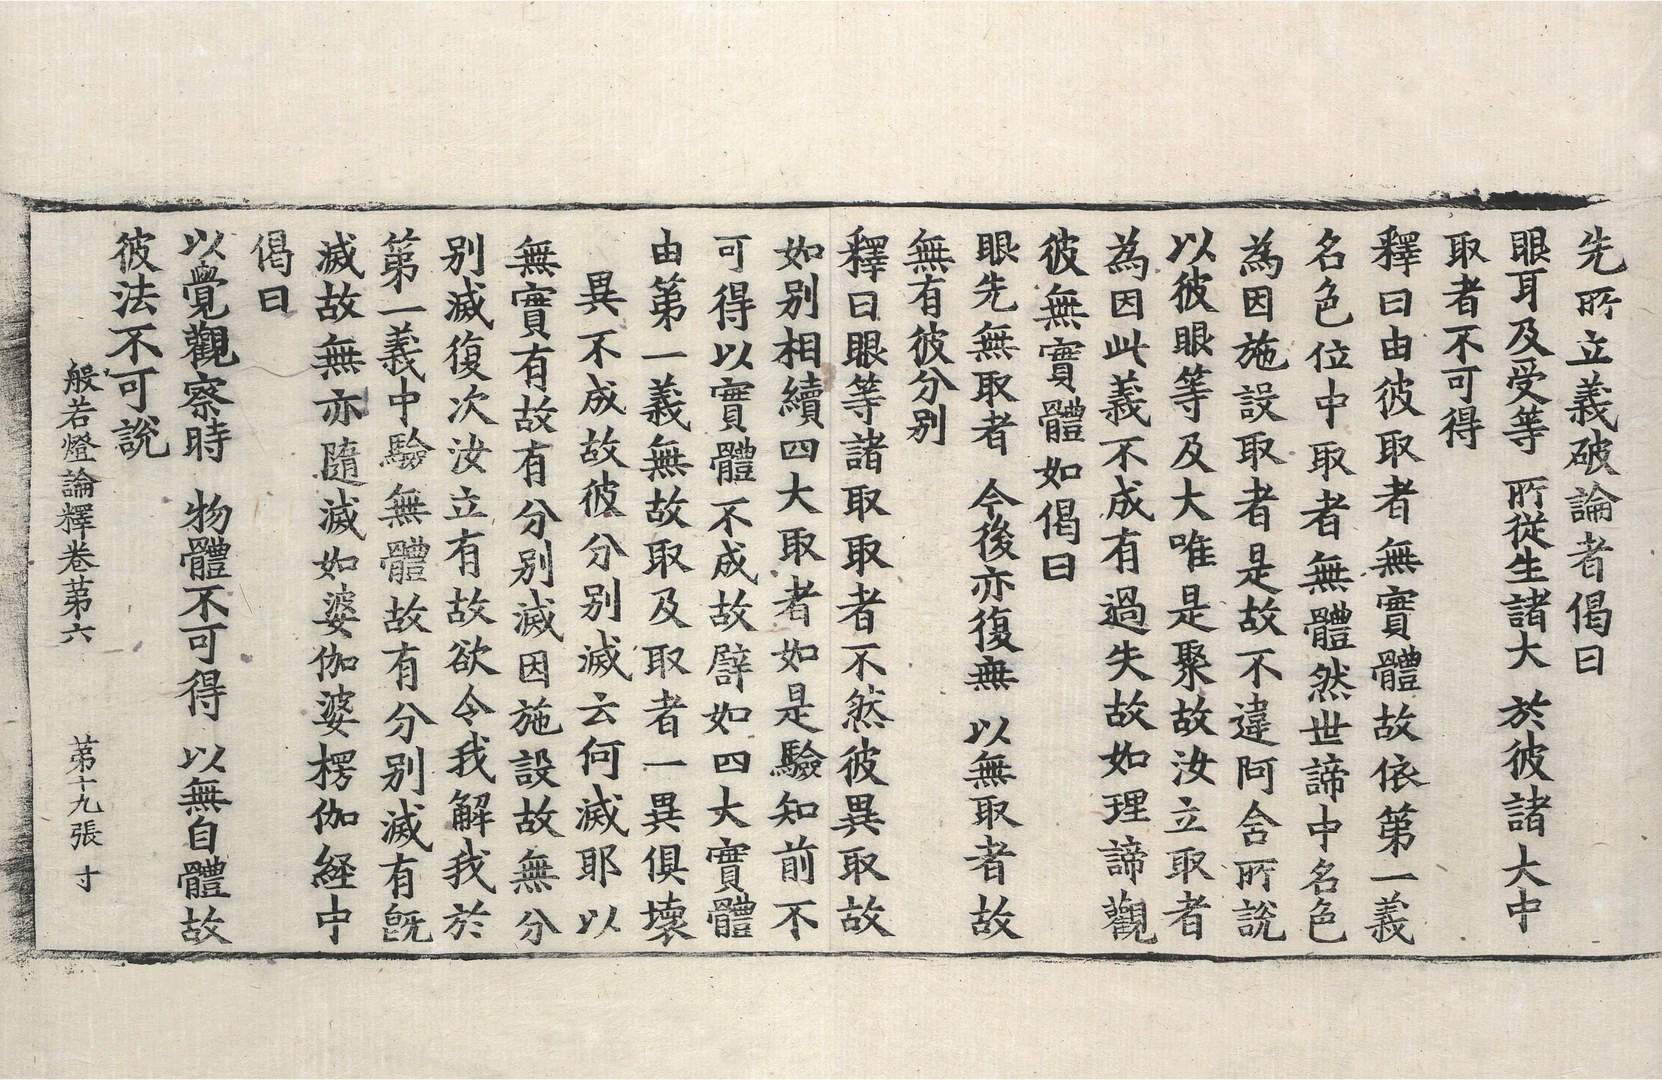 先所立義破論者偈曰
眼耳及受等 所從生諸大 於彼諸大中
取者不可得
釋曰由彼取者無實體故依第一義
名色位中取者無體然世諦中名色
為因施設取者是故不違阿含所說
以彼眼等及大唯是聚故汝立取者
為因此義不成有過失故如理諦觀
彼無實體如偈曰
眼先無取者 今後亦復無 以無取者故
無有彼分別
釋曰眼等諸取取者不然彼異取故
如別相續四大取者如是驗知前不
可得以實體不成故譬如四大實體
由第一義無故取及取者一異俱壞
異不成故彼分別滅云何滅耶以
無實有故有分別滅因施設故無分
別滅復次汝立有故欲令我解我於
第一義中驗無體故有分別滅有既
滅故無亦隨滅如婆伽婆楞伽経中
偈曰
以覺觀察時 物體不可得 以無自體故
彼法不可說
般若燈論釋卷苐六 苐十九張 寸